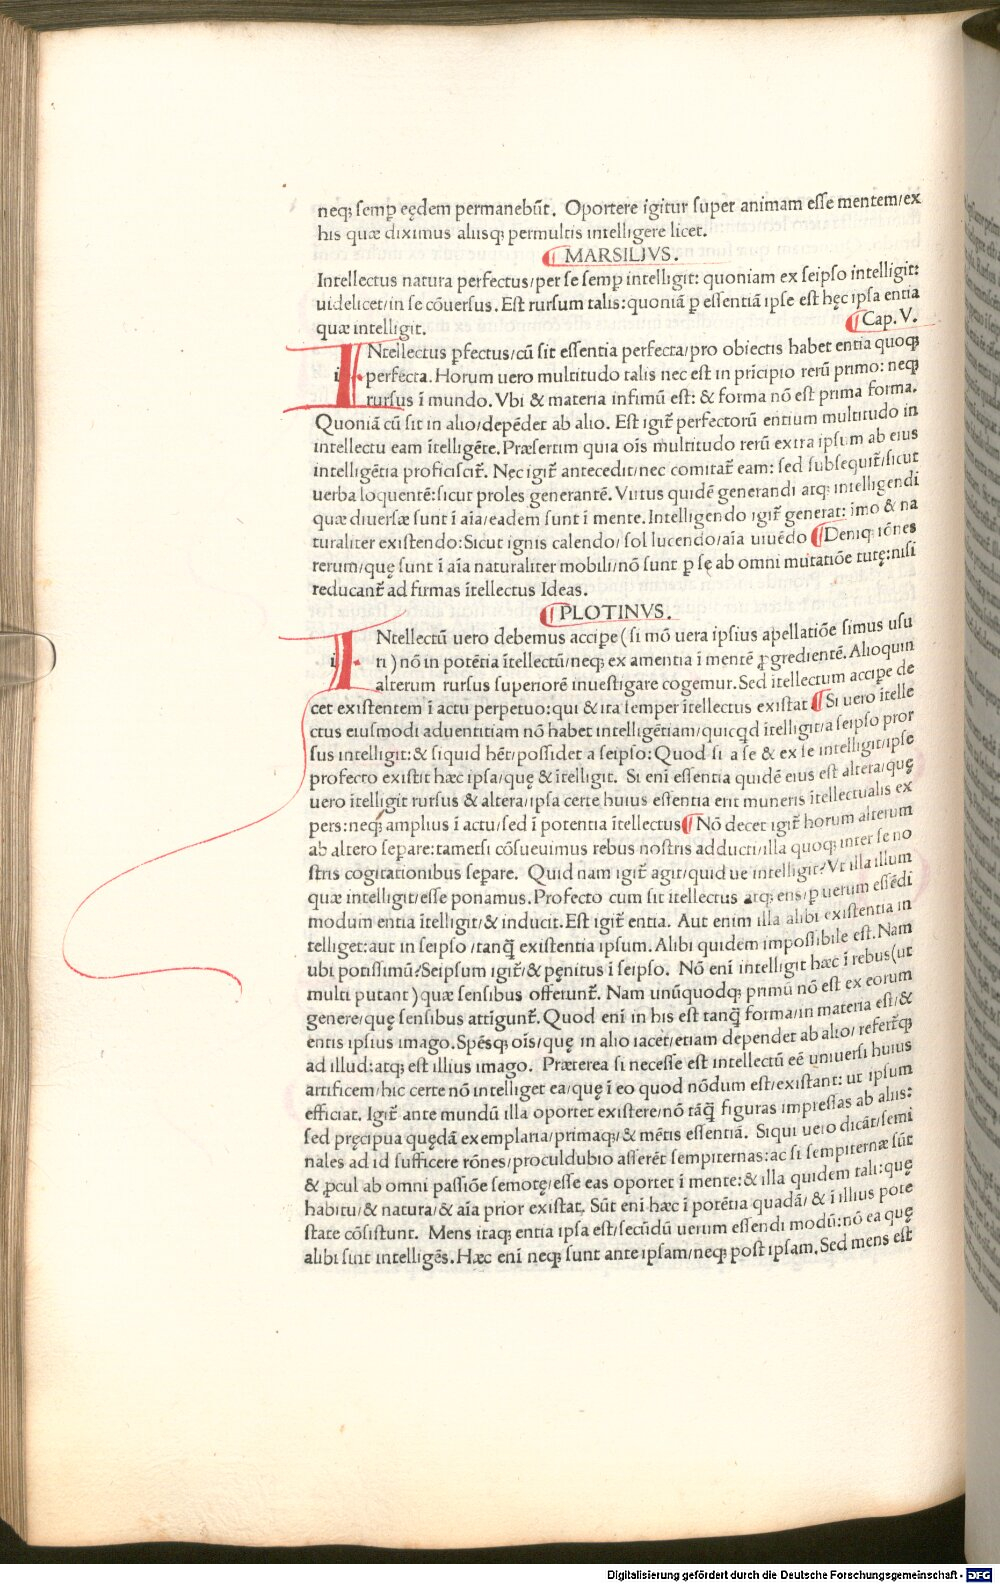 neq; semꝑ eędem permanebūt. Oportere igitur super animam esse mentem/ex
his quæ diximus aliisq; permultis intelligere licet.
¶MARSILIVS.
Intellectus natura perfectus/per se semꝑ intelligit: quoniam ex seipso intelligit:
uidelicet/in se cōuersus. Est rursum talis:quoniā ꝑ essentiā ipse est hęc ipsa entia
quæ intelligit.
¶Cap. V.
INtellectus ꝑfectus/cū sit essentia perfecta/pro obiectis habet entia quoq;
perfecta. Horum uero multitudo talis nec est in prīcipio rerū primo: neq;
rursus ī mundo. Vbi & materia infimū est: & forma nō est prima forma.
Quoniā cū sit in alio/depēdet ab alio. Est igit᷑ perfectorū entium multitudo in
intellectu eam ītelligēte. Præsertim quia oīs multitudo rerū extra ipsum ab eius
intelligētia proficiscit᷑. Nęc igit᷑ antecedit/nec comitat᷑ eam: sed subsequit᷑/sicut
uerba loquentē:sicut proles generantē. Virtus quidē generandi atq; intelligendi
quæ diuersæ sunt ī aīa/eadem sunt ī mente. Intelligendo igit᷑ generat: imo & na
turaliter existendo:Sicut ignis calendo/sol lucendo/aīa uiuēdo ¶Deniq; rōnes
rerum/quę sunt ī aīa naturaliter mobili/nō sunt ꝑ sę ab omni mutatiōe tutę:nisi
reducant᷑ ad firmas ītellectus Ideas.
¶PLOTINVS.
INtellectū uero debemus accipe (si mō uera ipsius apellatiōe simus usu
ri) nō in potētia ītellectū/neq; ex amentia ī mentē ꝓgredientē. Alioquin
alterum rursus superiorē inuestigare cogemur. Sed ītellectum accipe de
cet existentem ī actu perpetuo:qui & ita semper ītellectus existat ¶Si uero ītelle
ctus eiusmodi aduentitiam nō habet intelligētiam/quicqd ītelligit/a seipso pror
sus intelligit:& siquid hēt/possidet a seipso: Quod si a se & ex se intelligit/ipse
profecto existit hæc ipsa/quę & ītelligit. Si enī essentia quidē eius est altera/quę
uero ītelligit rursus & altera/ipsa certe huius essentia erit muneris ītellectualis ex
pers:neq; amplius ī actu/sed ī potentia ītellectus ¶Nō decet igit᷑ horum alterum
ab altero seꝑare:tametsi cōsueuimus rebus nostris adducti/illa quoq; inter se no
stris cogitationibus seꝑare. Quid nam igit᷑ agit/quid ue intelligit?Vt illa illum
quæ intelligit/esse ponamus. Profecto cum sit ītellectus atq; ens/ꝑ uerum essēdi
modum entia ītelligit/& inducit. Est igit᷑ entia. Aut enim illa alibi existentia in
telliget:aut in seipso/tanq̄ existentia ipsum. Alibi quidem impossibile est. Nam
ubi potissimū?Seipsum igit᷑/& pęnitus ī seipso. Nō enī intelligit hæc ī rebus(ut
multi putant) quæ sensibus offerunt᷑. Nam unūquodq; primū nō est ex eorum
genere/quę sensibus attīgunt᷑. Quod enī in his est tanq̄ forma/in materia est/&
entis ipsius imago. Spēsq; oīs/quę in alio iacet/etiam dependet ab alio/ refert᷑q;
ad illud:atq; est illius imago. Præterea si necesse est intellectū eē uniuersi huius
artificem/hic certe nō intelliget ea/quę ī eo quod nōdum est/existant: ut ipsum
efficiat. Igit᷑ ante mundū illa oportet existere/nō tāq̄ figuras impressas ab aliis:
sed pręcipua quędā exemplaria/primaq;/& mētis essentiā. Siqui uero dicāt/semi
nales ad id sufficere rōnes/proculdubio asserēt sempiternas:ac si sempiternæ sūt
& ꝓcul ab omni passiōe semotę/esse eas oportet ī mente:& illa quidem tali:quę
habitu/& natura/& aīa prior existat. Sūt enī hæc ī potētia quadā/ & ī illius pote
state cōsistunt. Mens itaq; entia ipsa est/secūdū uerum essendi modū:nō ea quę
alibi sint intelligēs. Hæc enī neq; sunt ante ipsam/neq; post ipsam. Sed mens est
Digitalisierung gefördert durch die Deutsche Forschungsgemeinschaft - DFG